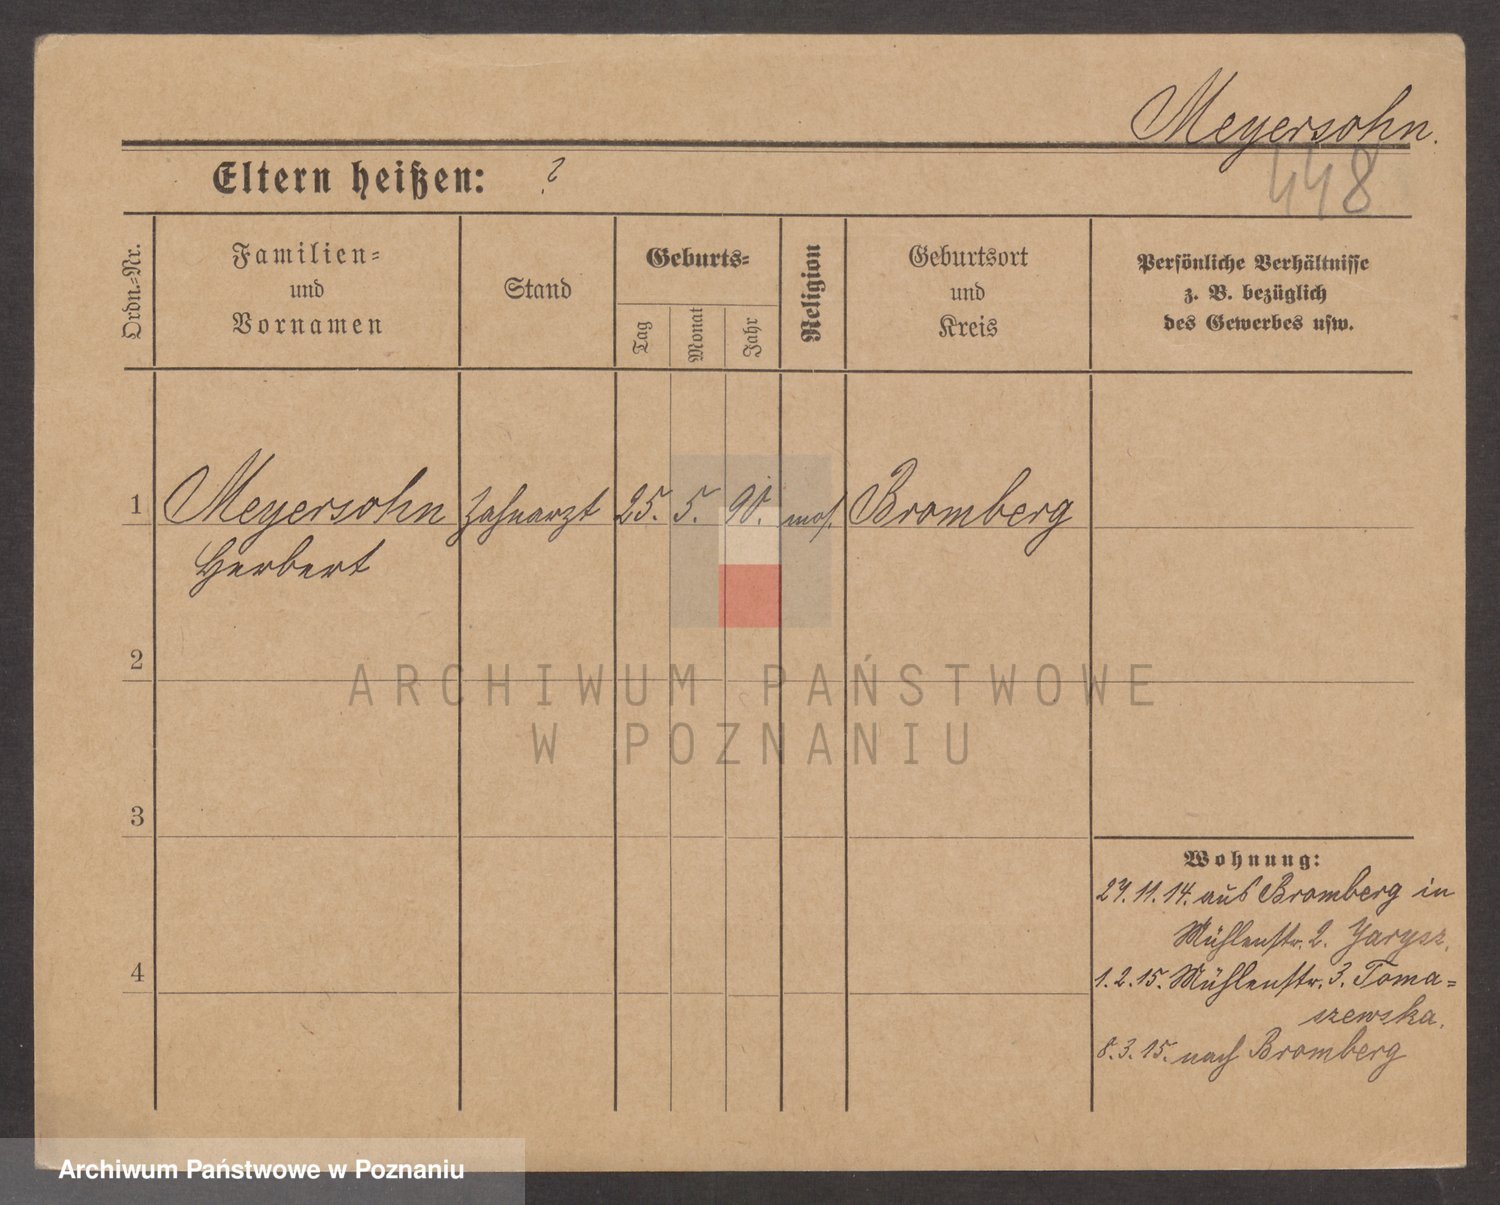 Meyersohn.
448
Eltern heißen: ?
Ordn.-Nr.
Familien-
und
Vornamen
Stand
Geburts-
Tag
Monat
Jahr
Religion
Geburtsort
und
Kreis
Persönliche Verhältnisse
z. B. bezüglich
des Gewerbes usw.
1 Meyersohn Zahnarzt 25. 5. 90. mos. Bromberg
Herbert
2
ARCHIWUM PAŃSTWOWE
W POZNANIU
3
Wohnung:
27.11.14. aus Bromberg in
Mühlenstr. 2. Jarysz.
4
1.2.15. Mühlenstr. 3. Toma=
szewska.
8.3.15. nach Bromberg
Archiwum Państwowe w Poznaniu